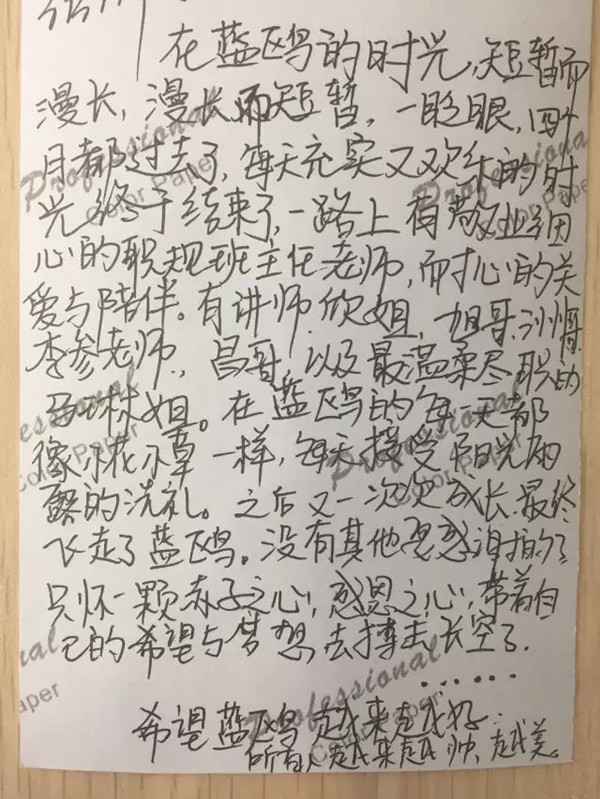 在蓝鸥的时光,短暂而
漫长,漫长而短暂,一眨眼,四个
月都过去了,每天充实又欢乐的时
光终于结束了,一路上有敬业细
心的职规班主任老师,耐心的关
爱与陪伴。有讲师欣姐,旭哥,
李参老师,昌哥,以及最温柔尽职的
马琳姐。在蓝鸥的每一天都
像小花小草一样,每天接受阳光雨
露的洗礼。之后又一次次成长,最终
飞走了蓝鸥。没有其他
只怀一颗赤子之心,感恩之心,带着自
己的希望与梦想去搏击长空了.
......
希望蓝鸥越来越好.
所有人越来越帅,越美.
Professional
Color Paper
Professional
Color Paper
Professional
Color Paper
Professional
Color Paper
Professional
Color Paper